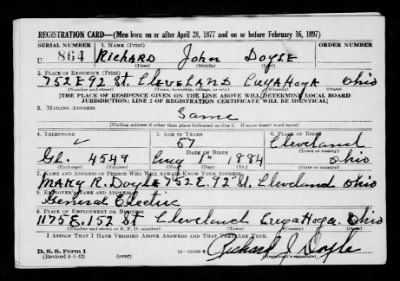 REGISTRATION CARD—(Men born on or after April 28, 1877 and on or before February 16, 1897)
SERIAL NUMBER 1. NAME (Print)
U 864 RICHARD John DOYLE
(First) (Middle) (Last)
2. PLACE OF RESIDENCE (Print)
752 E 92 St CLEVELAND CUYAHOGA Ohio
(Number and street) (Town, township, village, or city) (County) (State)
[THE PLACE OF RESIDENCE GIVEN ON THE LINE ABOVE WILL DETERMINE LOCAL BOARD
JURISDICTION; LINE 2 OF REGISTRATION CERTIFICATE WILL BE IDENTICAL]
3. MAILING ADDRESS
Same
[Mailing address if other than place indicated on line 2. If same insert word same]
4. TELEPHONE 5. AGE IN YEARS 6. PLACE OF BIRTH
57 Cleveland
DATE OF BIRTH (Town or county)
GL. 4549 Aug 1st 1884 Ohio
(Exchange) (Number) (Mo.) (Day) (Yr.) (State or country)
7. NAME AND ADDRESS OF PERSON WHO WILL ALWAYS KNOW YOUR ADDRESS
MARY R. Doyle 752 E. 92nd St. Cleveland Ohio
8. EMPLOYER'S NAME AND ADDRESS
General Electric
9. PLACE OF EMPLOYMENT OR BUSINESS
1175 E. 152 St Cleveland Cuyahoga. Ohio
(Number and street or R. F. D. number) (Town) (County) (State)
I AFFIRM THAT I HAVE VERIFIED ABOVE ANSWERS AND THAT THEY ARE TRUE.
D. S. S. Form 1
(Revised 4-1-42) (over) Richard J. Doyle